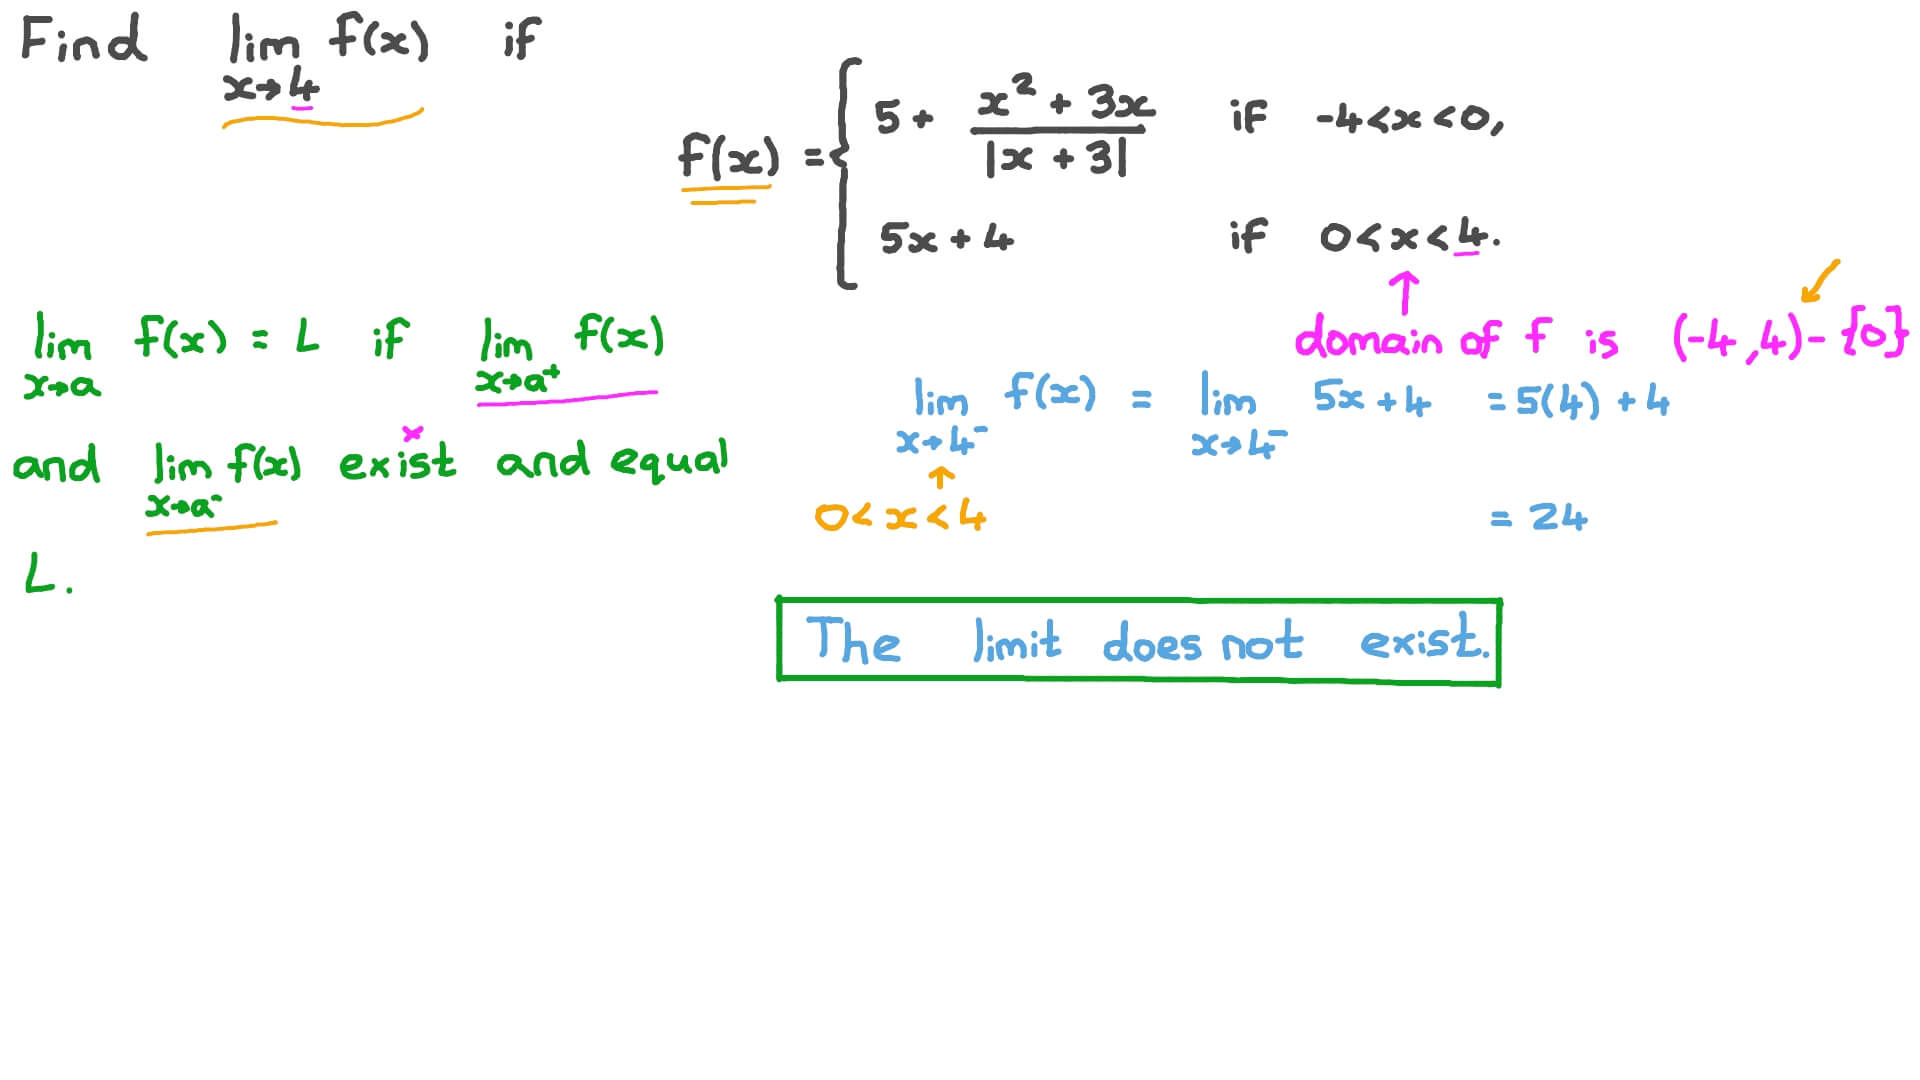 Find lim f(x) if
x→4
f(x) = { 5 + x² + 3x / |x + 3| if -4<x<0,
5x + 4 if 0<x<4.
domain of f is (-4,4)-{0}
lim f(x) = L if lim f(x)
x→a x→a⁺
and lim f(x) exist and equal
x→a⁻
L.
lim f(x) = lim 5x+4 = 5(4)+4
x→4⁻ x→4⁻
0<x<4 = 24
The limit does not exist.